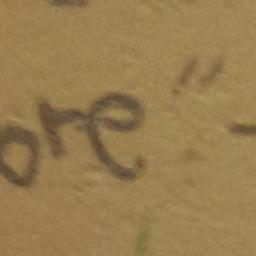 ore" -